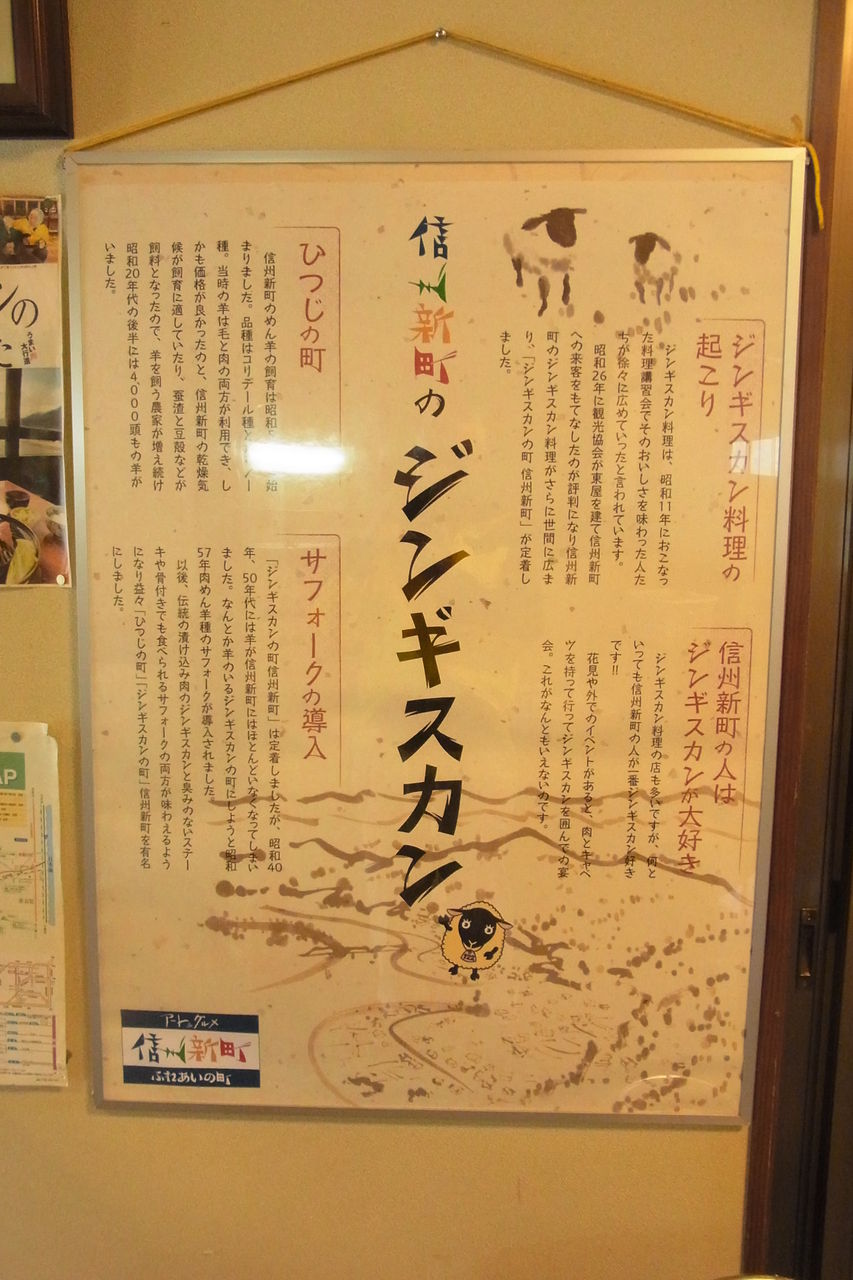 信州新町の
ジンギスカン
ジンギスカン料理の
起こり
ジンギスカン料理は、昭和11年におこなっ
た料理講習会でそのおいしさを味わった人た
ちが徐々に広めていったと言われています。
昭和26年に観光協会が東屋を建て信州新町
への来客をもてなしたのが評判になり信州新
町のジンギスカン料理がさらに世間に広ま
り、「ジンギスカンの町 信州新町」が定着し
ました。
信州新町の人は
ジンギスカンが大好き
ジンギスカン料理の店も多いですが、何と
いっても信州新町の人が一番ジンギスカン好き
です!!
花見や外でのイベントがあると、肉とキャベ
ツを持って行ってジンギスカンを囲んでの宴
会。これがなんともいえないのです。
ひつじの町
信州新町のめん羊の飼育は昭和
始
まりました。品種はコリデール種と
ー
種。当時の羊は毛と肉の両方が利用でき、し
かも価格が良かったのと、信州新町の乾燥気
候が飼育に適していたり、蚕渣と豆殻などが
飼料となったので、羊を飼う農家が増え続け
昭和20年代の後半には4,000頭もの羊が
いました。
サフォークの導入
「ジンギスカンの町信州新町」は定着しましたが、昭和40
年、50年代には羊が信州新町にはほとんどいなくなってしまい
ました。なんとか羊のいるジンギスカンの町にしようと昭和
57年肉めん羊種のサフォークが導入されました。
以後、伝統の漬け込み肉のジンギスカンと臭みのないステー
キや骨付きでも食べられるサフォークの両方が味わえるよう
になり益々「ひつじの町」「ジンギスカンの町」信州新町を有名
にしました。
アート&グルメ
信州新町
ふれあいの町
ンの
うまい
大行進
AP